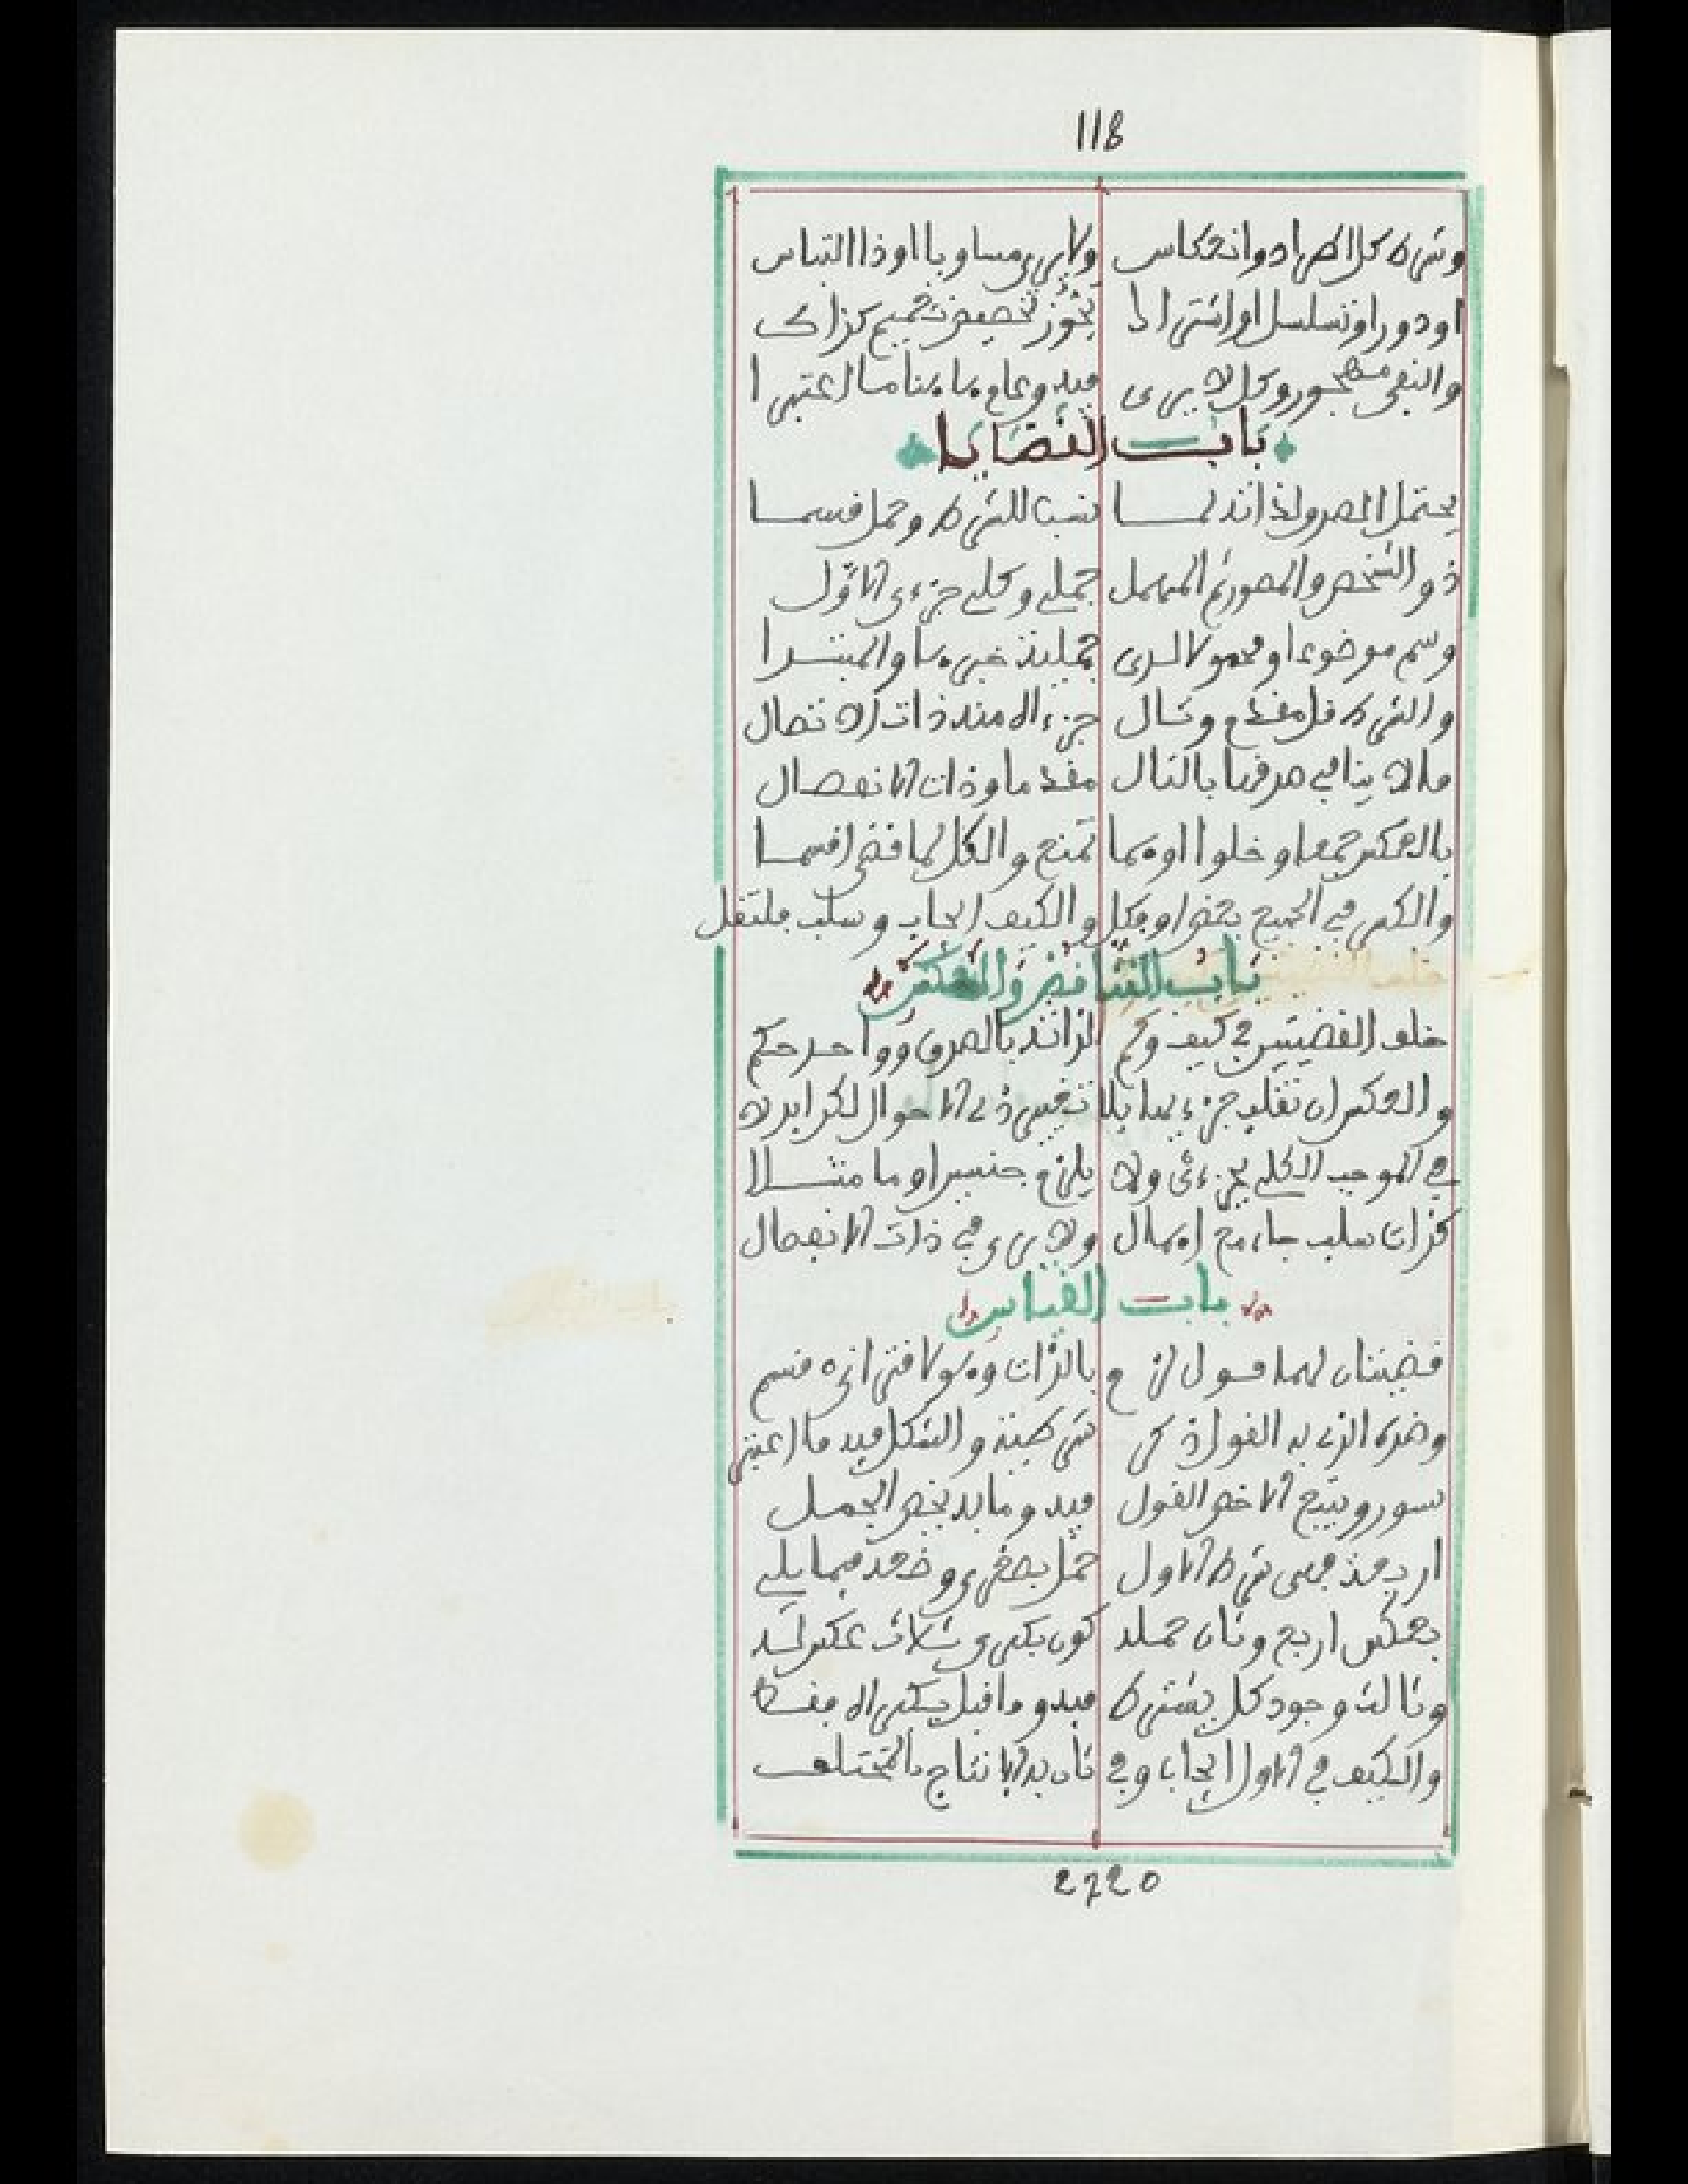 118
وشرط كل اطراد وانعكاس ولا يرى مساويا او ذا التباس
او دور او تسلسل او اشتراك يجوز تخصيص قبيح كذاك
والنفي مهجور وكل لا يرى فيه وعام هاهنا ما اعتبرا
باب القضايا
يحتمل الصدق لذاته لما نسب للشرط وحمل قسما
ذو الشخص والمسور ثم المهمل حملي وكلي جزءي الاول
وسم موضوعا ومحمولا لدى حملية خبرها والمبتدا
والشرط قل مقدم وتال جزءاه منه ذات الاتصال
ما لا ينافي صدقها بالتال مقدما وذات الانفصال
بالعكس جمعا وخلوا او هما تمنع والكل لما قضى اقسما
والكم في الجميع بعض او فكل والكيف ايجاب وسلب فلتقل
باب التناقض والعكس
خلف القضيتين في كيف وكم لزائد بالصدق وواحد حكم
والعكس ان تقلب جزءيها بلا تغيير ذي الاحوال لكن ابدلا
في الموجب الكلي بجزءي ولا يلزم جنسين او ما مثلا
كذات سلب جاء مع اهمال ولا يرى في ذات الانفصال
باب القياس
قضيتان لهما قول لزم بالذات وهو لاقتراني قسم
وضده الذي به القول ذكر شرطية والشكل فيه ما اعتبر
سور وينتج الاخص القول فيه وما به يخص الجمل
اربعة فهي شرط الاول حمل بصغرى وضعه فيما يلي
بعكس اربع وثان حمله كون بكبرى ثلاث عكس له
وثالث وجود كل يشترط فيه وما قبل بكبراه فقط
والكيف في الاول ايجاب وفي ثان به الانتاج بالمختلف
2720